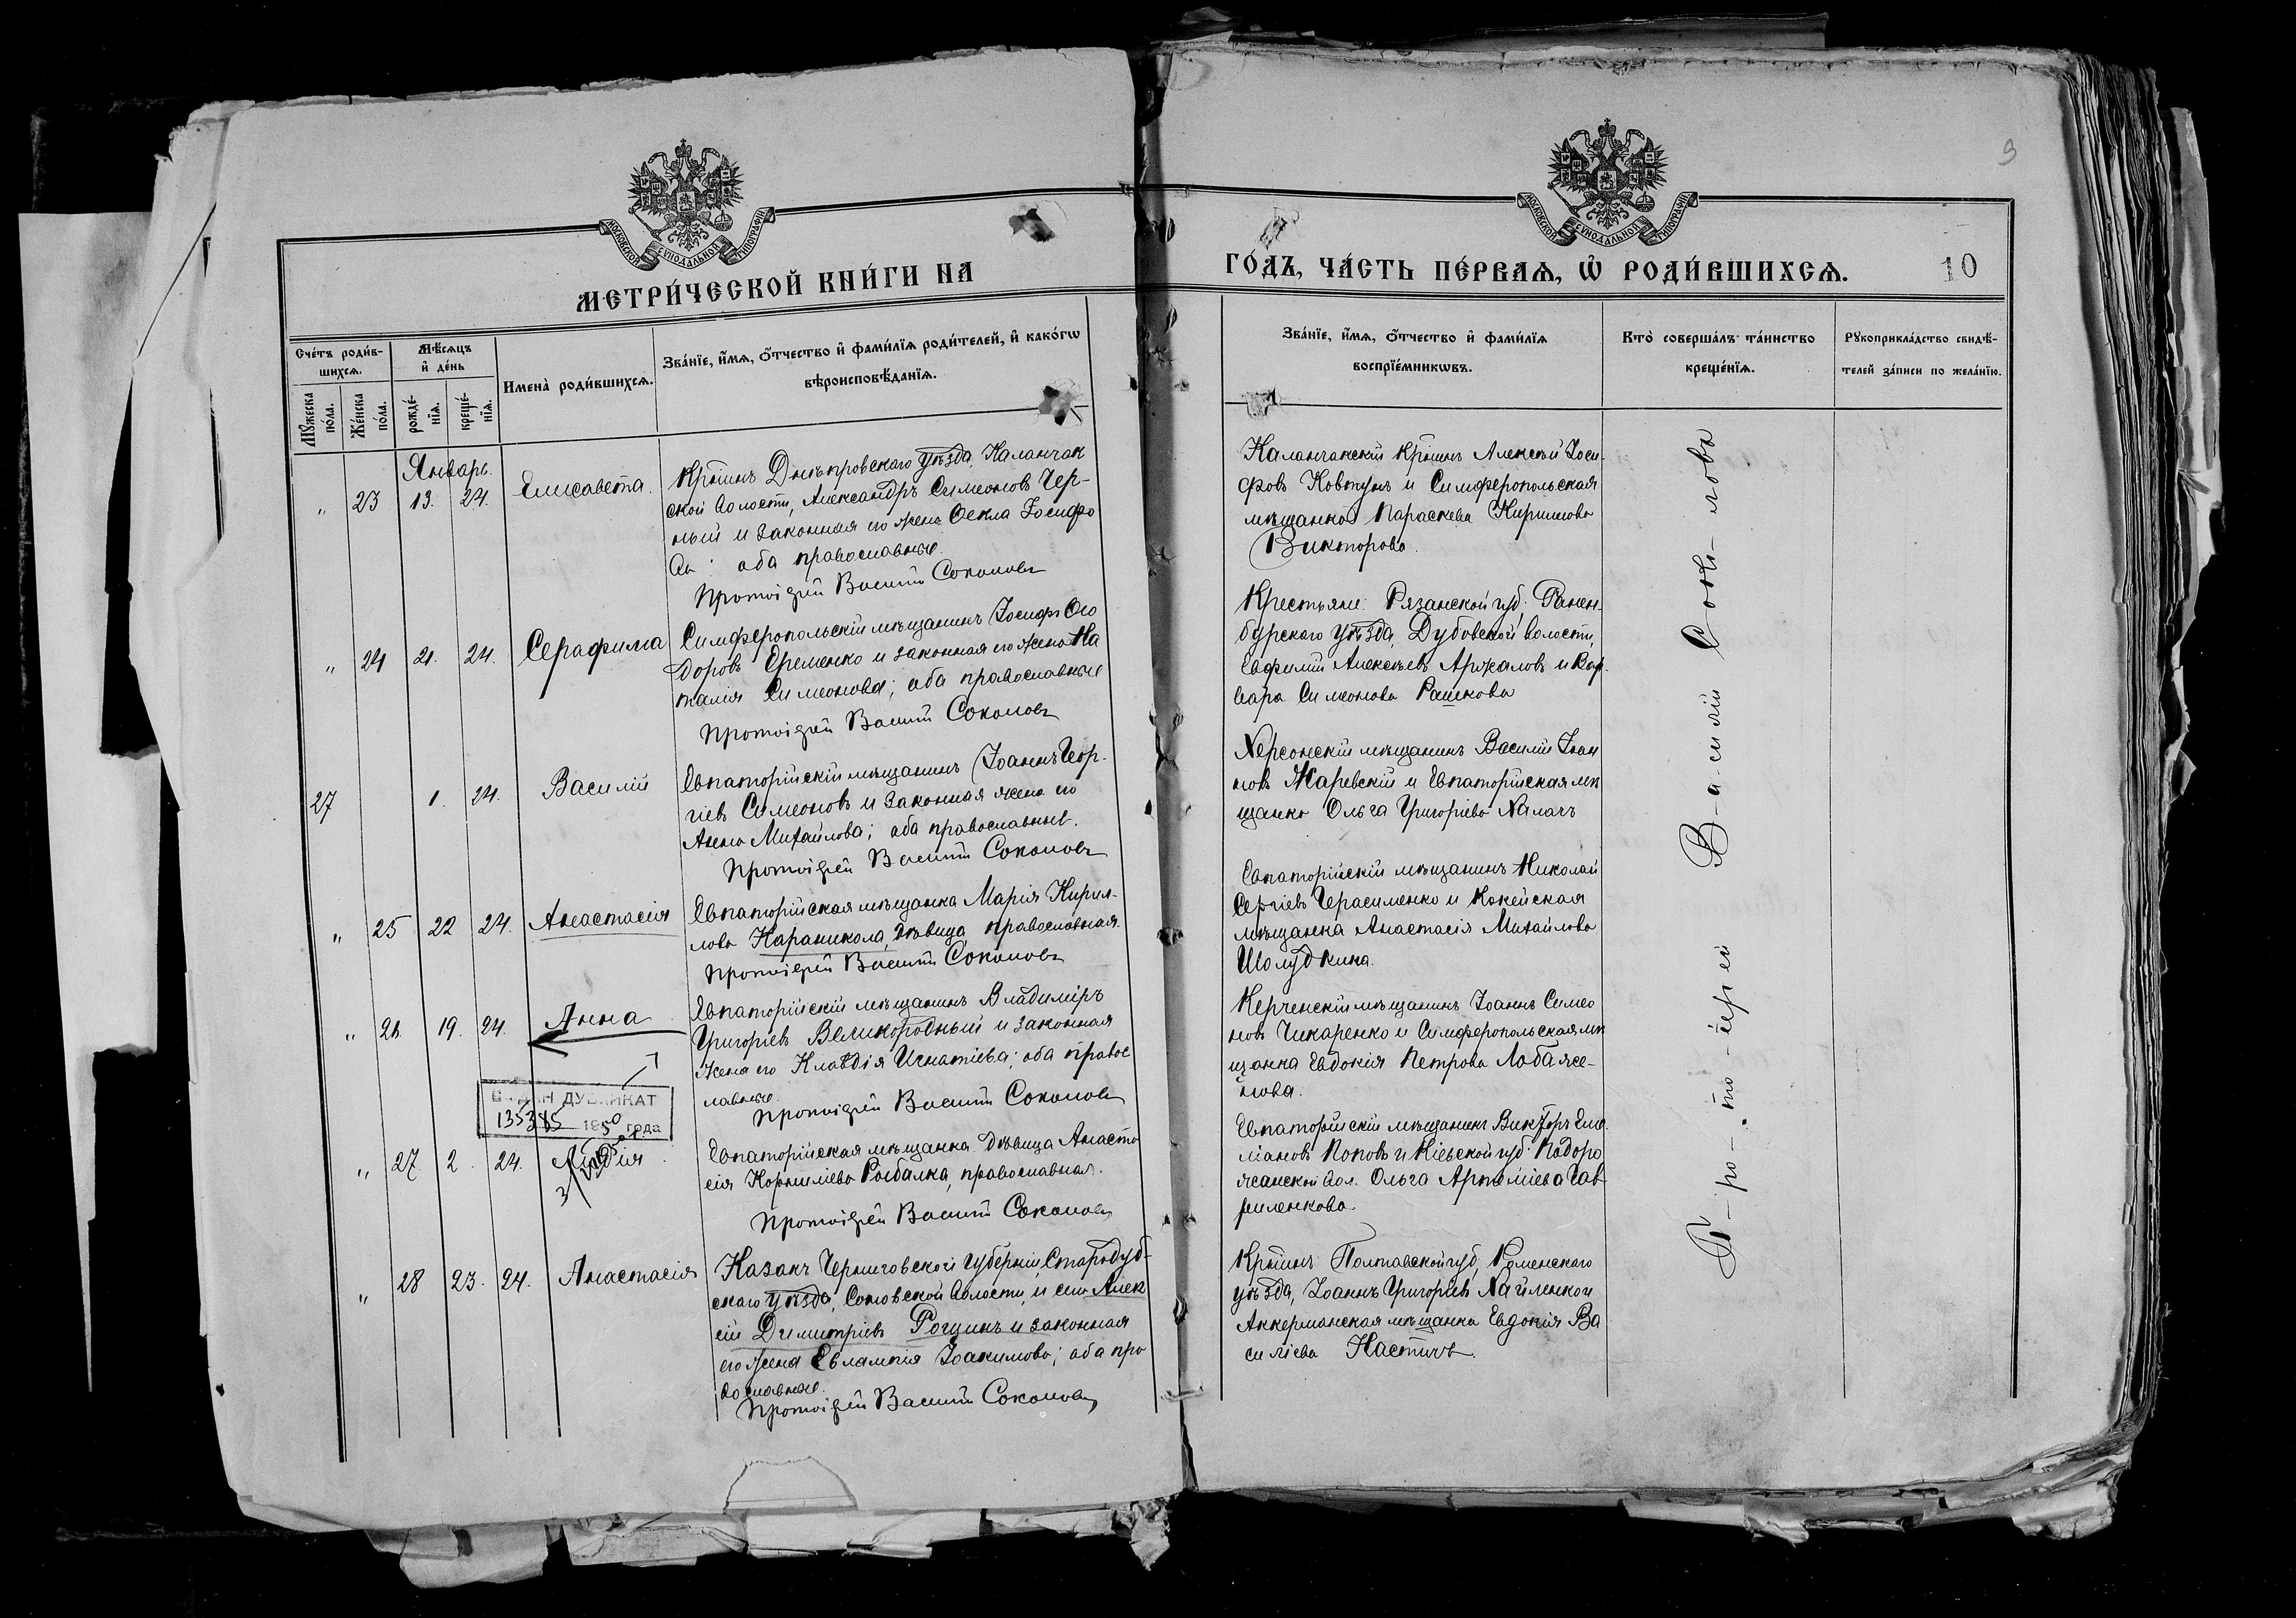 9
МОСКОВСКОЙ СУНОДАЛЬНОЙ ТИПОГРАФІИ
МОСКОВСКОЙ СУНОДАЛЬНОЙ ТИПОГРАФІИ
МЕТРИ́ЧЕСКОЙ КНИ́ГИ НА
ГО́ДЪ, ЧА́СТЬ ПЕ́РВАѦ, Ѡ҆ РОДИ́ВШИХСѦ.
10
Сче́тъ роди́в-
шихсѧ.
Мѣ́сѧцъ
и҆ де́нь
Мꙋ́жеска
по́ла.
Же́нска
по́ла.
рожде́-
нїѧ.
креще́-
нїѧ.
Имена̀ роди́вшихсѧ.
Зва́нїе, и҆́мѧ, ѻ҆́тчество и҆ фами́лїѧ роди́телей, и҆ како́гѡ
вѣроисповѣ́данїѧ.
Зва́нїе, и҆́мѧ, ѻ҆́тчество и҆ фами́лїѧ
воспрїе́мникѡвъ.
Кто̀ соверша́лъ та́инство
креще́нїѧ.
Рꙋкоприкла́дство свидѣ́-
телей за́писи по жела́нїю.
Январь
" 23 13. 24. Елисавета.
Кр̃тинъ Днѣпровскаго уѣзда, Каланчак
ской волости, Александръ Симеоновъ Чер-
ный и законная его жена Ѳекла Іосифо
ва; оба православные.
Протоіерей Василій Соколовъ
Каланчакскій кр̃тинъ Алексѣй Іоси-
фовъ Ковтунъ и Симферопольская
мѣщанка Параскева Кириллова
Викторова.
" 24 21. 24. Серафима
Симферопольскій мѣщанинъ Іосифъ Ѳео
доровъ Еременко и законная его жена На
талія Симеонова; оба православные
Протоіерей Василій Соколовъ
Крестьяне: Рязанской губ. Ранен-
бурскаго уѣзда, Дубовской волости,
Евфимій Алексѣевъ Аржаловъ и Вар-
вара Симеонова Рашкова
27 1. 24. Василій
Евпаторійскій мѣщанинъ Іоаннъ Геор-
гіевъ Симеоновъ и законная жена его
Анна Михайлова; оба православные.
Протоіерей Василій Соколовъ
Херсонскій мѣщанинъ Василій Іоан
новъ Жаревскій и Евпаторійская мѣ
щанка Ольга Григоріева Халачъ
" 25 22 24. Анастасія
Евпаторійская мѣщанка Марія Кирил-
лова Караникола, дѣвица, православная.
Протоіерей Василій Соколовъ
Евпаторійскій мѣщанинъ Николай
Сергіевъ Герасименко и
мѣщанка Анастасія Михайлова
Шолудкина.
" 26. 19. 24. Анна
Евпаторійскій мѣщанинъ Владиміръ
Григоріевъ Великородный и законная
жена его Клавдія Игнатіева; оба правос
лавные.
Протоіерей Василій Соколовъ
Керченскій мѣщанинъ Іоаннъ Симео
новъ Чикаренко и Симферопольская мѣ
щанка Евдокія Петрова Лобаже-
нова.
ВЫДАН ДУБЛИКАТ
135385 1950 года
" 27. 2. 24. Лидія.
Евпаторійская мѣщанка дѣвица Анаста
сія Корниліева Рыбалка, православная.
Протоіерей Василій Соколовъ
Евпаторійскій мѣщанинъ Викторъ Еми
ліановъ Поповъ и Кіевской губ. Подоро
жанской вол. Ольга Артеміева Гав-
риленкова.
" 28 23. 24. Анастасія
Казакъ Черниговской губерніи, Стародуб-
скаго уѣзда, Соковской волости, и села Алек
сій Димитріевъ Рощинъ и законная
его жена Евлампія Іоакимова; оба пра
вославные.
Протоіерей Василій Соколовъ
Кр̃тинъ Полтавской губ, Роменскаго
уѣзда, Іоаннъ Григоріевъ Хайленко и
Аккерманская мѣщанка Евдокія Ва
силіева Настичъ.
П-ро-то-іерей В-а-силій Соко-ловъ